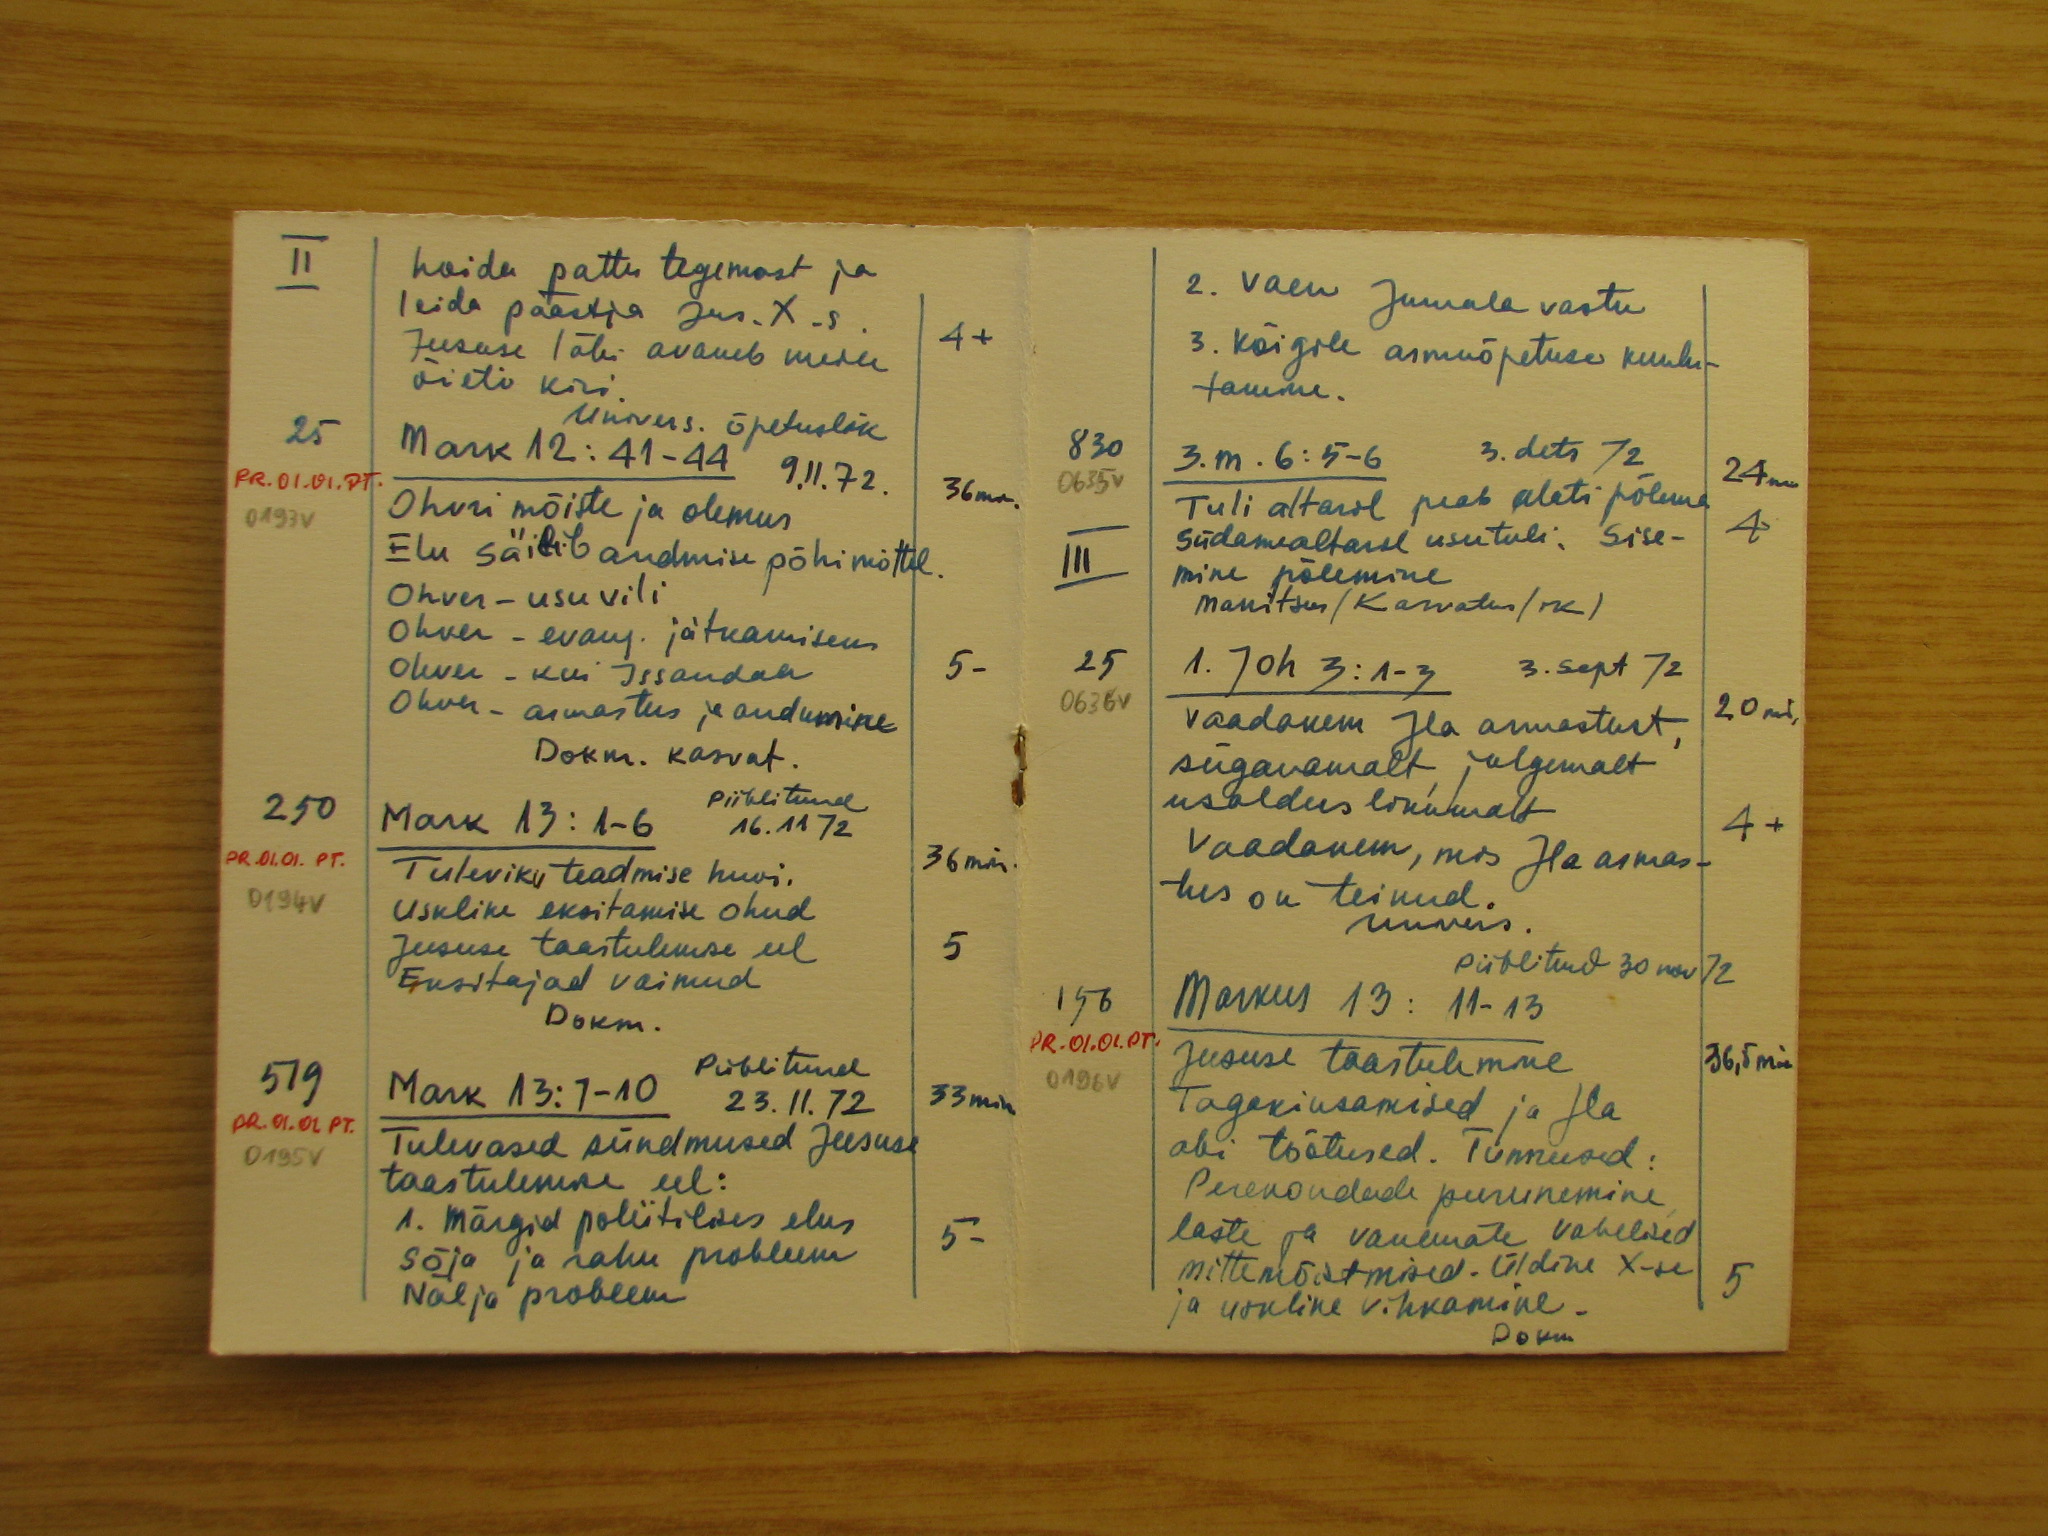 II
hoida pattu tegemast ja
leida päästja Jus. X-s.
4+
Jeesuse läbi avaneb meile
õieti kiri.
Univers. õpetuslik
25
Mark 12:41-44
9.11.72.
PR.01.01.PT.
36 min.
0193V
Ohvri mõiste ja olemus
Elu säilib andmise põhimõttel.
Ohver - usu vili
Ohver - evang. jätkamiseks
Ohver - kui Issandaa
5-
Ohver - armastus ja andumine
Dokm. kasvat.
250
Mark 13:1-6
Piiblitund
16.11 72
PR.01.01. PT.
36 min.
0194V
Tuleviku teadmise huvi.
Usklike eksitamise ohud
Jeesuse taastulemise eel
5
Eksitajad vaimud
Dokm.
519
Mark 13:7-10
Piiblitund
23.11.72
33 min
PR.01.01 PT.
0195V
Tulevased sündmused Jeesuse
taastulemise eel:
1. Märgid poliitilises elus
5-
Sõja ja rahu probleem
Nälja probleem
2. Vaen Jumala vastu
3. Kõigile armuõpetuse kuulu-
tamine.
830
3.m.6:5-6
3.dets 72
24 min
0635V
Tuli altaril peab alati põlema
4
Südamealtaril usutuli. Sise-
III
mine põlemine
Manitsus (Kasvatus/ik)
25
1. Joh 3:1-3
3.sept 72
20 min,
0636V
Vaadakem Jla armastust,
sügavamalt, julgemalt
usalduslikumalt
4+
Vaadakem, mis Jla armas-
tus on teinud.
Univers.
Piiblitund 30 nov 72
156
Markus 13: 11-13
PR.01.01.PT.
36,5 min
0196V
Jeesuse taastulemine
Tagakiusamised ja Jla
abi tõotused. Tunnused:
Perekondade purunemine
laste ja vanemate vahelised
mittemõistmised. Üldine X-se
5
ja usklike vihkamine.
Dokm